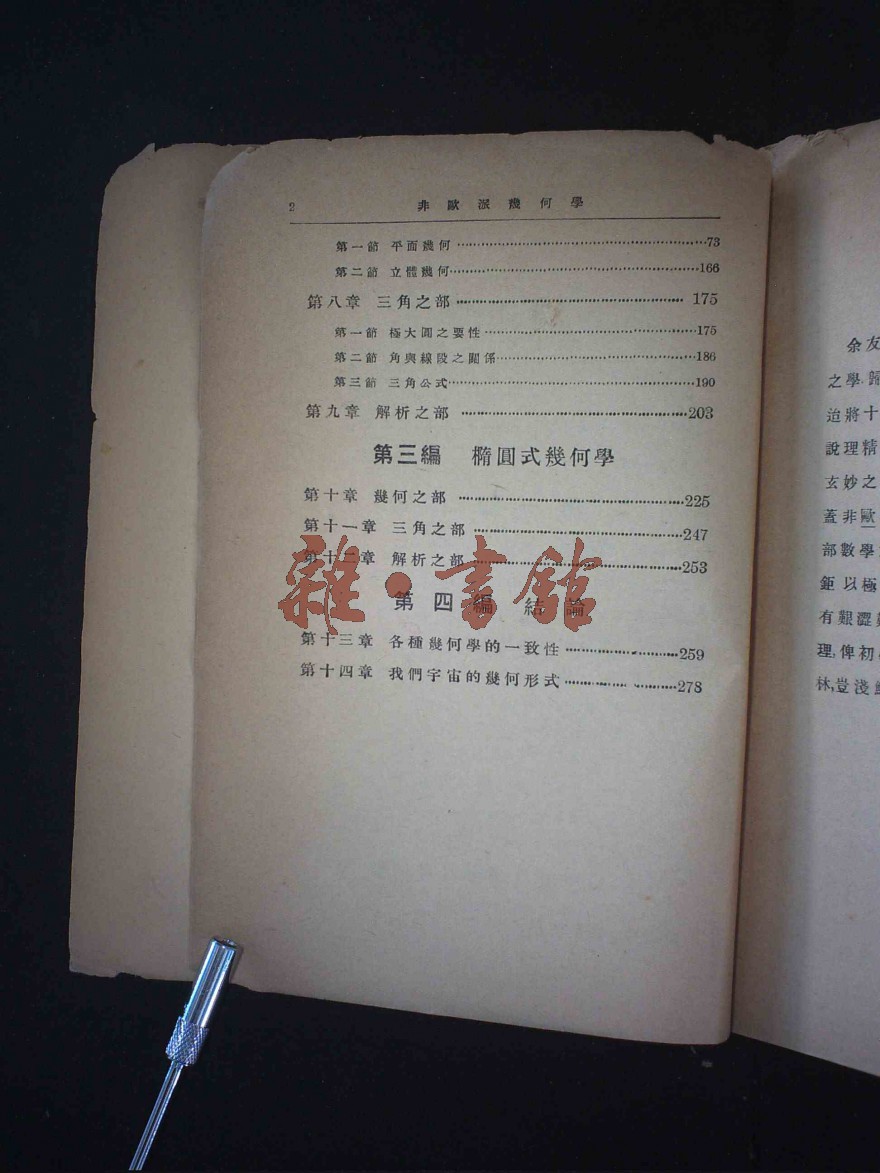 2 非歐派幾何學
第一節 平面幾何 73
第二節 立體幾何 166
第八章 三角之部 175
第一節 極大圓之要性 175
第二節 角與線段之關係 186
第三節 三角公式 190
第九章 解析之部 203
第三編 橢圓式幾何學
第十章 幾何之部 225
第十一章 三角之部 247
第十二章 解析之部 253
第四編 結論
第十三章 各種幾何學的一致性 259
第十四章 我們宇宙的幾何形式 278
雜·書館
余友
之學,歸
治將十
說理精
玄妙之
蓋非歐
部數學
鉅以極
有艱澀
理,俾初
林,豈淺